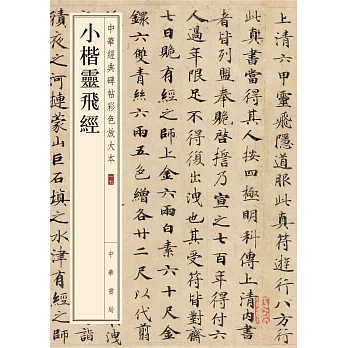 上清六甲靈飛隱道服此真符遊行八方行
此真書當得其人按四極明科傳上清内書
者皆列盟奉賝啓誓乃宣之七百年得付六
人過年限足不得復出泄也其受符皆對齋
七日賝有經之師上金六兩白素六十尺金
鐶六雙青絲六兩五色繒各廿二尺以代翦
中華經典碑帖彩色放大本
小楷靈飛經
中華書局
積夜之河摙蒙山巨石填之水津有經之師